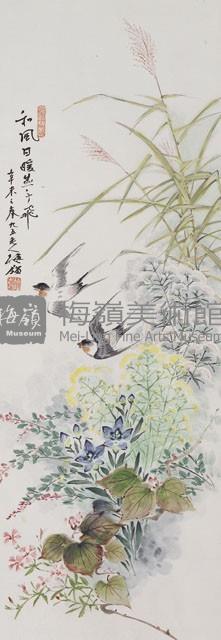 和風日暖燕子飛
辛未之春九五叟
梅嶺
Museum
梅嶺美術館
Mei-Ling Fine Art Museum